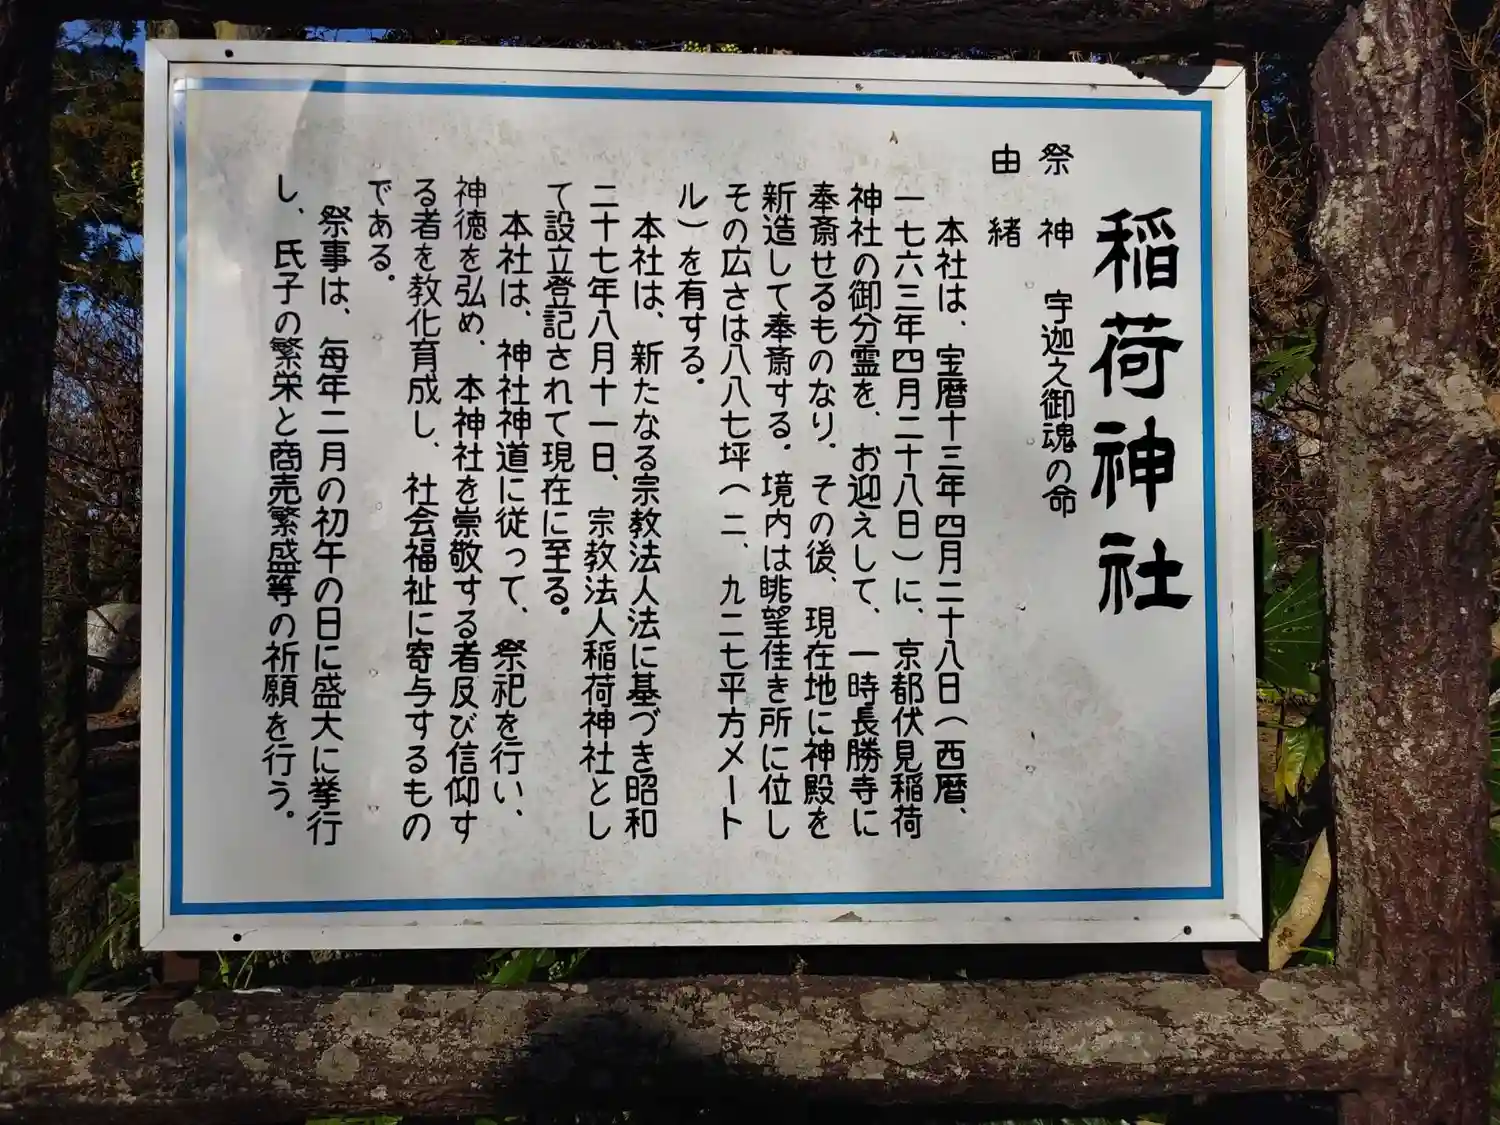 稲荷神社
祭神 宇迦之御魂の命
由緒
本社は、宝暦十三年四月二十八日（西暦、
一七六三年四月二十八日）に、京都伏見稲荷
神社の御分霊を、お迎えして、一時長勝寺に
奉斎せるものなり。その後、現在地に神殿を
新造して奉斎する。境内は眺望佳き所に位し
その広さは八八七坪（二、九二七平方メート
ル）を有する。
本社は、新たなる宗教法人法に基づき昭和
二十七年八月十一日、宗教法人稲荷神社とし
て設立登記されて現在に至る。
本社は、神社神道に従って、祭祀を行い、
神徳を弘め、本神社を崇敬する者及び信仰す
る者を教化育成し、社会福祉に寄与するもの
である。
祭事は、毎年二月の初午の日に盛大に挙行
し、氏子の繁栄と商売繁盛等の祈願を行う。